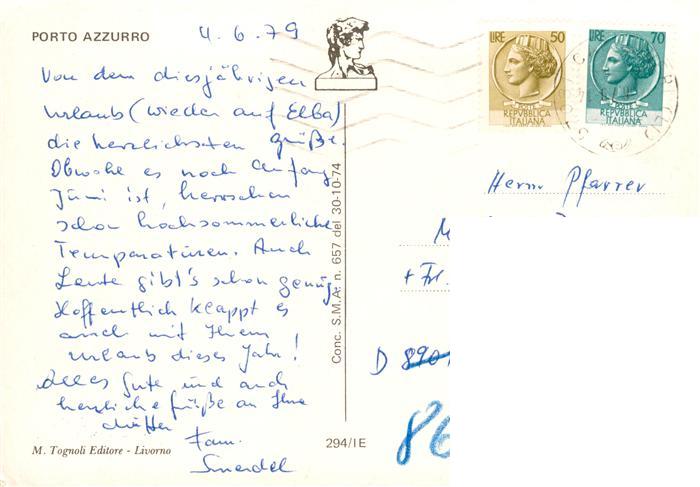 PORTO AZZURRO
4.6.79
Von dem diesjährigen
Urlaub (wieder auf Elba)
die herzlichsten Grüße.
Obwohl es noch Anfang
Juni ist, herrschen
schon hochsommerliche
Temperaturen. Auch
Leute gibt's schon genug.
Hoffentlich klappt es
auch mit Ihrem
Urlaub dieses Jahr!
Alles Gute und auch
herzliche Grüße an Ihre
Fam.
M. Tognoli Editore - Livorno
294/IE
Conc. S.M.A. n. 657 del 30-10-74
LIRE 50
REPVBBLICA
ITALIANA
LIRE 70
REPVBBLICA
ITALIANA
Herrn Pfarrer
M
+ Frl.
D 890
86